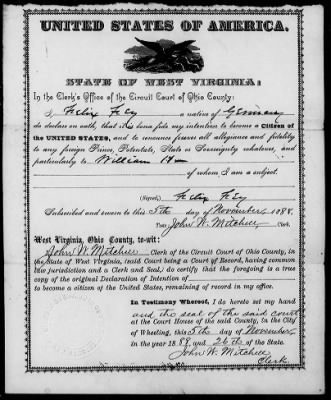 UNITED STATES OF AMERICA.
STATE OF WEST VIRGINIA:
In the Clerk's Office of the Circuit Court of Ohio County:
I, Felix Fey a native of German
do declare on oath, that it is bona fide my intention to become a Citizen of
the UNITED STATES, and to renounce forever all allegiance and fidelity
to any foreign Prince, Potentate, State or Sovereignty whatever, and
particularly to William II
of whom I am a subject.
(Signed,) Felix Fey
Subscribed and sworn to this 5th day of November, 1888.
Teste John W. Mitchell Clerk.
West Virginia, Ohio County, to-wit:
I, John W. Mitchell Clerk of the Circuit Court of Ohio County, in
the State of West Virginia, (said Court being a Court of Record, having common
law jurisdiction and a Clerk and Seal,) do certify that the foregoing is a true
copy of the original Declaration of Intention of
to become a citizen of the United States, remaining of record in my office.
In Testimony Whereof, I do hereto set my hand
and the seal of the said court
at the Court House of the said County, in the City
of Wheeling, this 5th day of November
in the year 1888, and 26th of the State.
John W. Mitchell
Clerk.